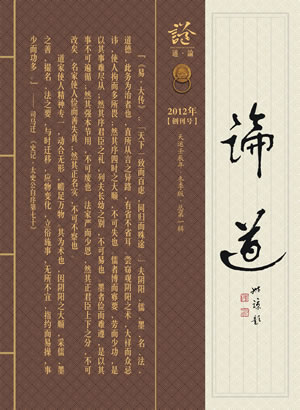 論道
道·論
2012年
【创刊号】
《易·大传》:「天下一致而百虑,同归而殊途。」夫阴阳、儒、墨、名、法、
道德,此务为治者也,直所从言之异路,有省不省耳。尝窃观阴阳之术,大祥而众忌
讳,使人拘而多所畏;然其序四时之大顺,不可失也。儒者博而寡要,劳而少功,是
以其事难尽从;然其序君臣之礼,列夫长幼之别,不可易也。墨者俭而难遵,是以其
事不可遍循;然其强本节用,不可废也。法家严而少恩;然其正君臣上下之分,不可
改矣。名家使人俭而善失真;然其正名实,不可不察也。
道家使人精神专一,动合无形,赡足万物。其为术也,因阴阳之大顺,采儒、墨
之善,撮名、法之要,与时迁移,应物变化,立俗施事,无所不宜,指约而易操,事
少而功多。——司马迁《史记·太史公自序第七十》